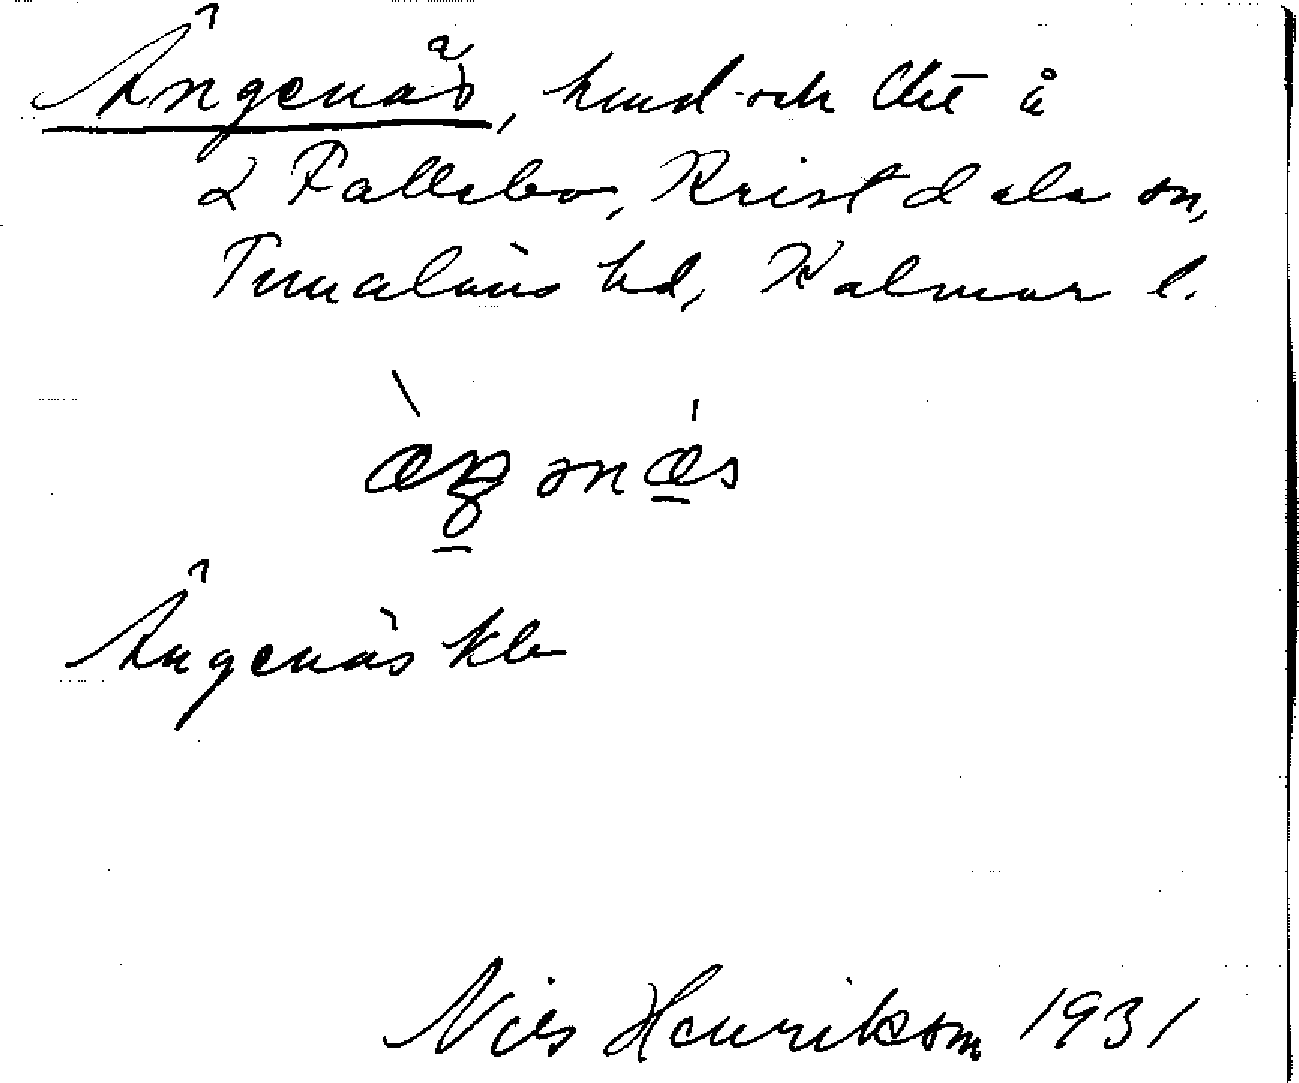 Ängenäs, hmd och lht å
2 Fallebo, Kristdala sn,
Tunaläns hd, Kalmar l.
æŋənæs
Ängenäs kla
Nils Henrikson 1931